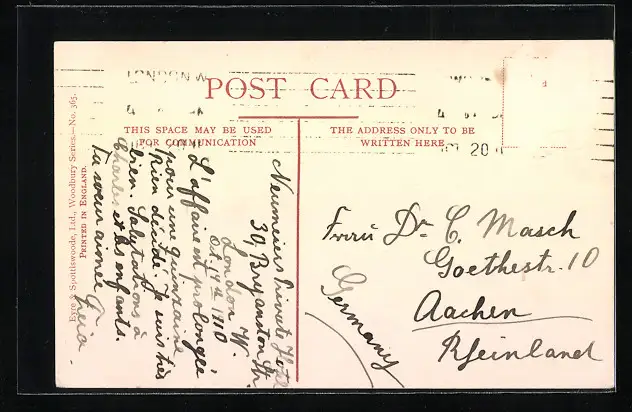 LONDON W
POST CARD
THIS SPACE MAY BE USED
FOR COMMUNICATION
THE ADDRESS ONLY TO BE
WRITTEN HERE
20
Eyre & Spottiswoode, Ltd., Woodbury Series.—No. 365.
PRINTED IN ENGLAND.
Neumeiers Private Hotel
39, Bryanston Str.
London W.
Oct. 19th 1910
L'affaire est prolongée
pour une Quinzaine
Rien décidé. Je suis très
bien. Salutations à
Charles et les enfants.
Ta soeur aimée
Frau Dr. C. Masch
Goethestr. 10
Aachen
Rheinland
Germany